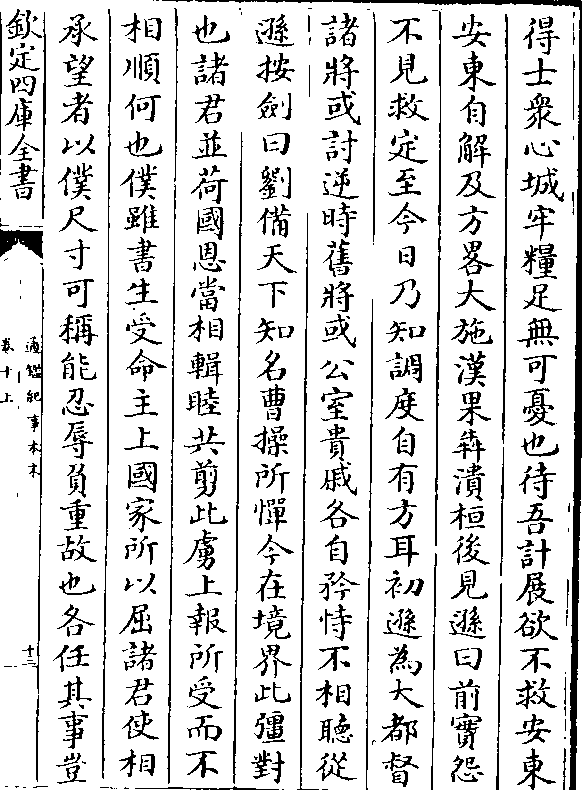 得士衆心城牢糧足無可憂也待吾計展欲不救安東
安東自解及方畧大施漢果犇潰桓後見遜曰前實怨
不見救定至今日乃知調度自有方耳初遜為大都督
諸將或討逆時舊將或公室貴戚各自矜恃不相聽從
遜按劍曰劉備天下知名曹操所憚今在境界此彊對
也諸君並荷國恩當相輯睦共剪此虜上報所受而不
相順何也僕雖書生受命主上國家所以屈諸君使相
承望者以僕尺寸可稱能忍辱負重故也各任其事豈
欽定四庫全書
通鑑紀事本末
卷十上
十三